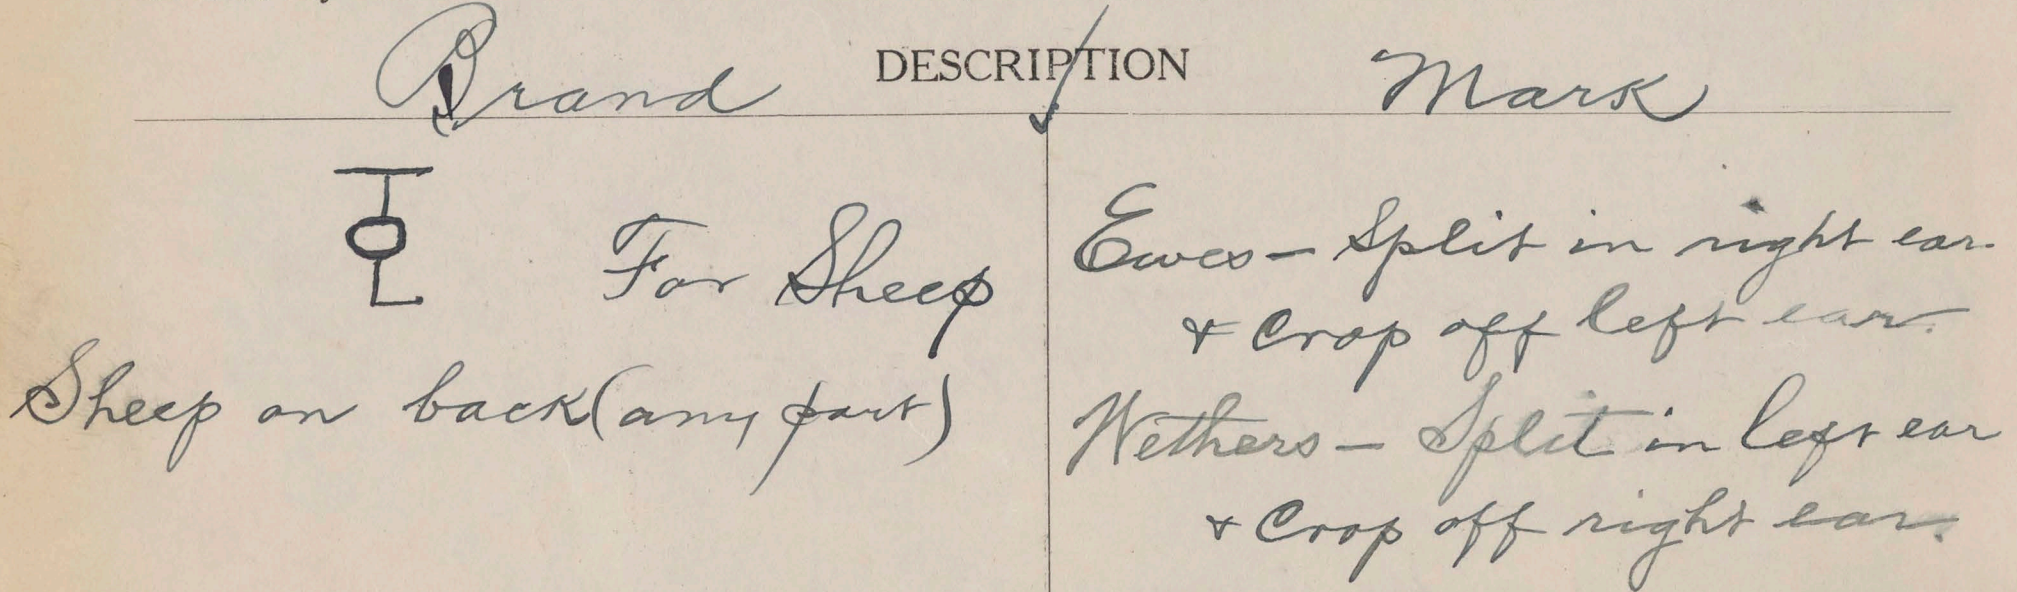 Brand DESCRIPTION Mark
For Sheep
Sheep on back (any part)
Ewes - Split in right ear
& Crop off left ear.
Wethers - Split in left ear
& Crop off right ear.